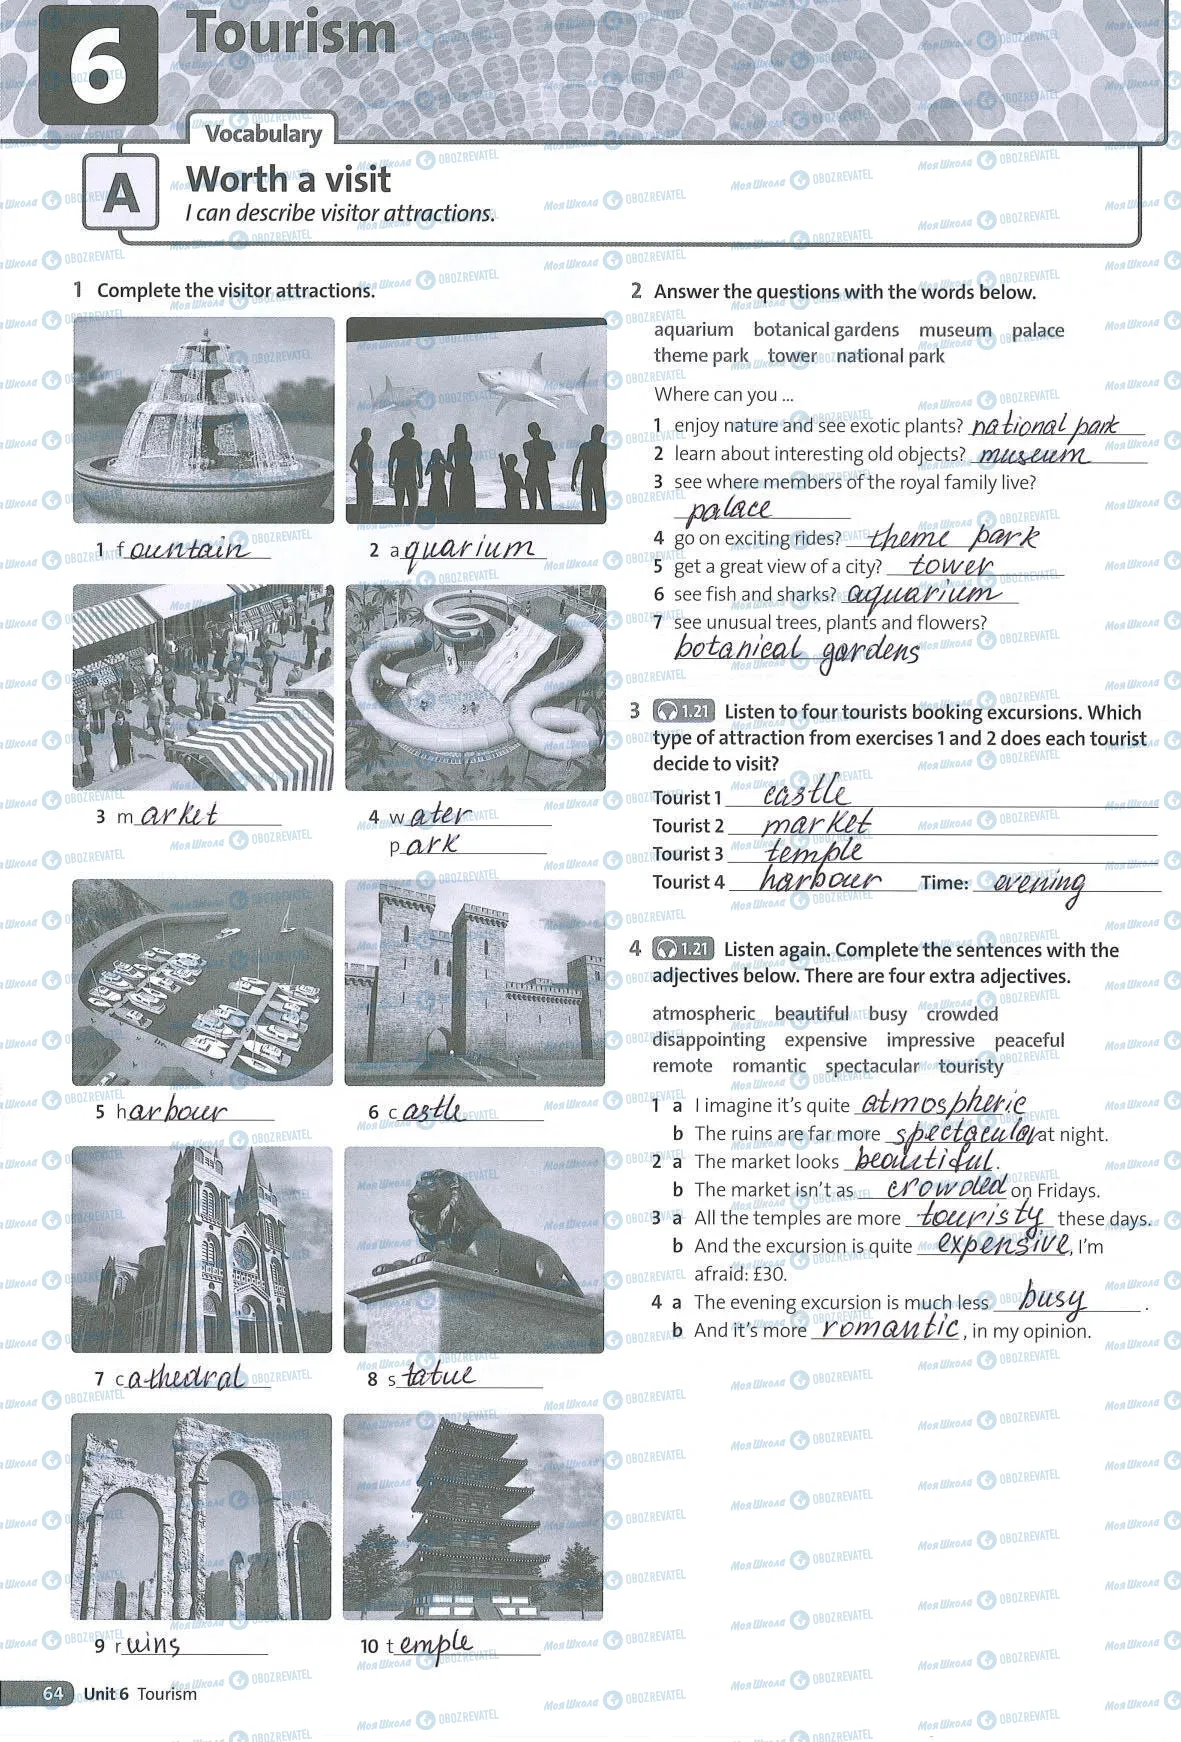 6
Tourism
Vocabulary
A
Worth a visit
I can describe visitor attractions.
1 Complete the visitor attractions.
1 fountain
2 aquarium
3 market
4 water
park
5 harbour
6 castle
7 cathedral
8 statue
9 ruins
10 temple
2 Answer the questions with the words below.
aquarium botanical gardens museum palace
theme park tower national park
Where can you ...
1 enjoy nature and see exotic plants? national park
2 learn about interesting old objects? museum
3 see where members of the royal family live?
palace
4 go on exciting rides? theme park
5 get a great view of a city? tower
6 see fish and sharks? aquarium
7 see unusual trees, plants and flowers?
botanical gardens
3 1.21 Listen to four tourists booking excursions. Which
type of attraction from exercises 1 and 2 does each tourist
decide to visit?
Tourist 1 castle
Tourist 2 market
Tourist 3 temple
Tourist 4 harbour Time: evening
4 1.21 Listen again. Complete the sentences with the
adjectives below. There are four extra adjectives.
atmospheric beautiful busy crowded
disappointing expensive impressive peaceful
remote romantic spectacular touristy
1 a I imagine it's quite atmospheric
b The ruins are far more spectacular at night.
2 a The market looks beautiful.
b The market isn't as crowded on Fridays.
3 a All the temples are more touristy these days.
b And the excursion is quite expensive, I'm
afraid: £30.
4 a The evening excursion is much less busy.
b And it's more romantic, in my opinion.
64 Unit 6 Tourism
Моя Школа OBOZREVATEL